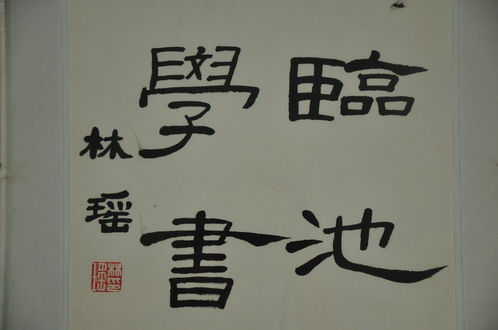 臨池
學書
林瑶